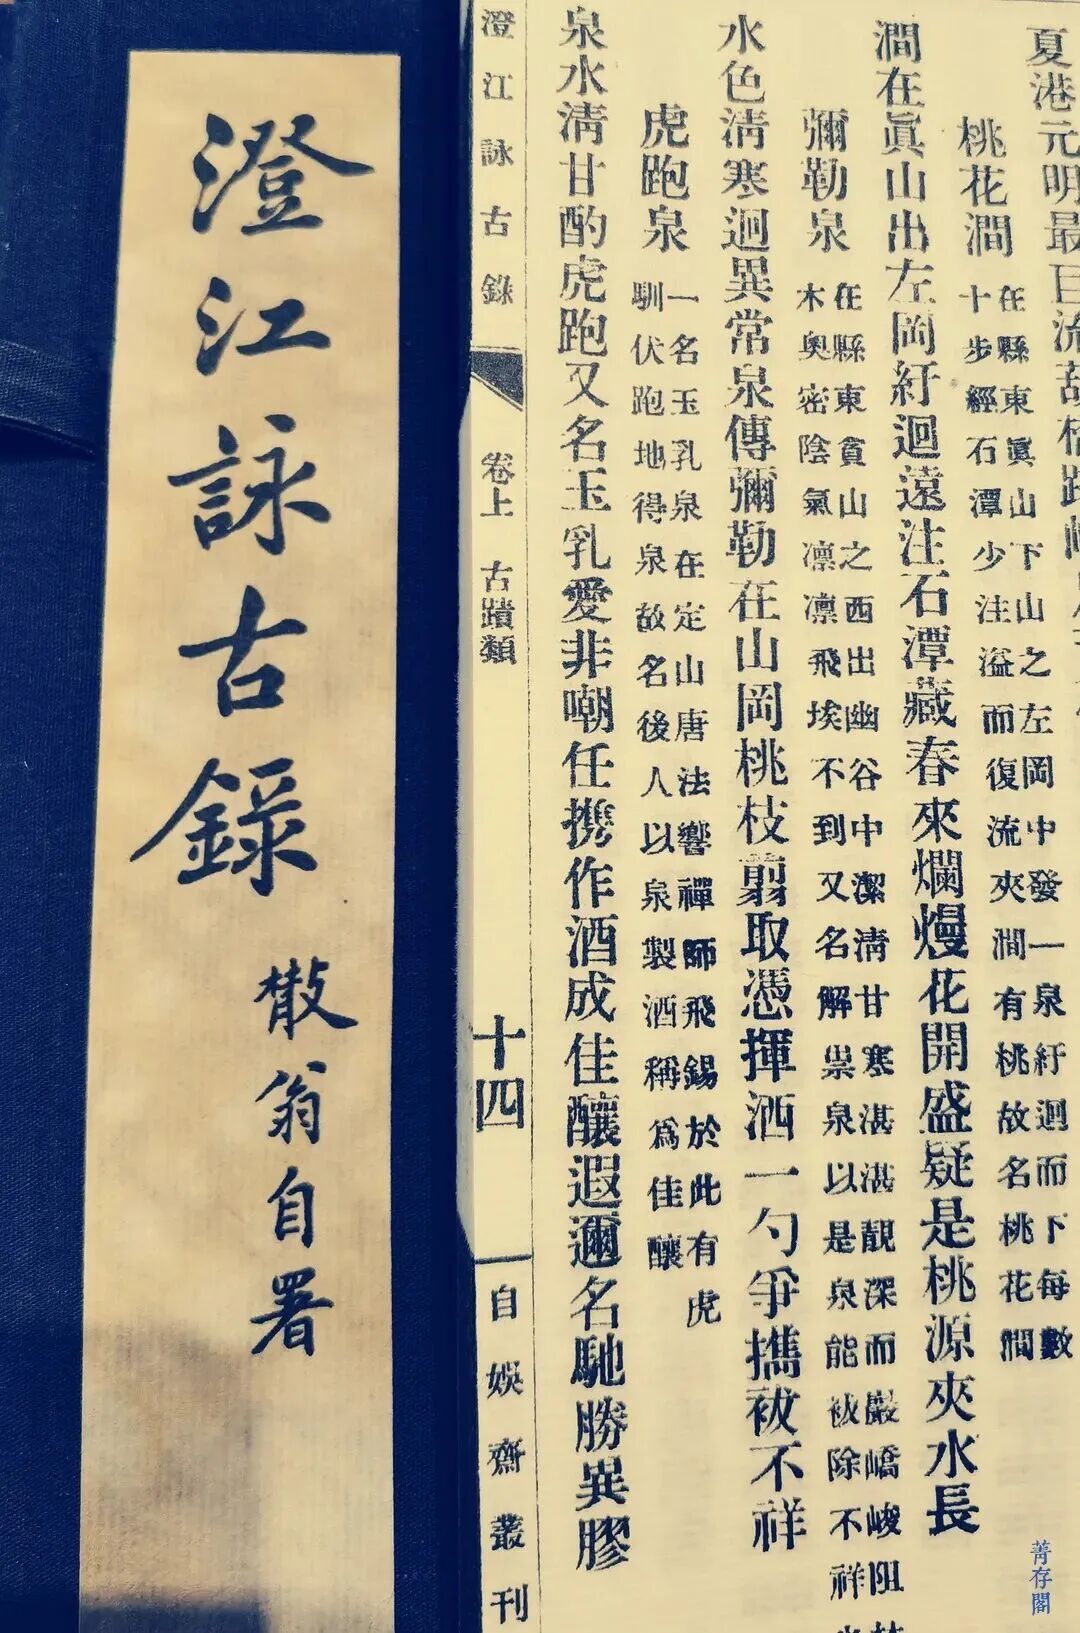 澄江詠古錄
散翁自署
夏港元明最
桃花澗
在縣東眞山下山之左岡中發一泉紆迴而下每數
十步經石潭少注溢而復流夾澗有桃故名桃花澗
澗在眞山出左岡紆迴遠注石潭藏春來爛熳花開盛疑是桃源夾水長
彌勒泉
在縣東山之西出幽谷中潔清甘寒湛湛靚深而嚴嶠峻阻
木奧密陰氣凛凛飛埃不到又名解祟泉以是泉能祓除不祥
水色清寒迴異常泉傳彌勒在山岡桃枝翦取憑揮洒一勺爭擕祓不祥
虎跑泉
一名玉乳泉在定山唐法響禪師飛錫於此有虎
馴伏跑地得泉故名後人以泉製酒稱爲佳釀
泉水清甘酌虎跑又名玉乳愛非嘲任携作酒成佳釀遐邇名馳勝異膠
澄江詠古錄 卷上 古蹟類 十四 自娛齋叢刊
菁存閣